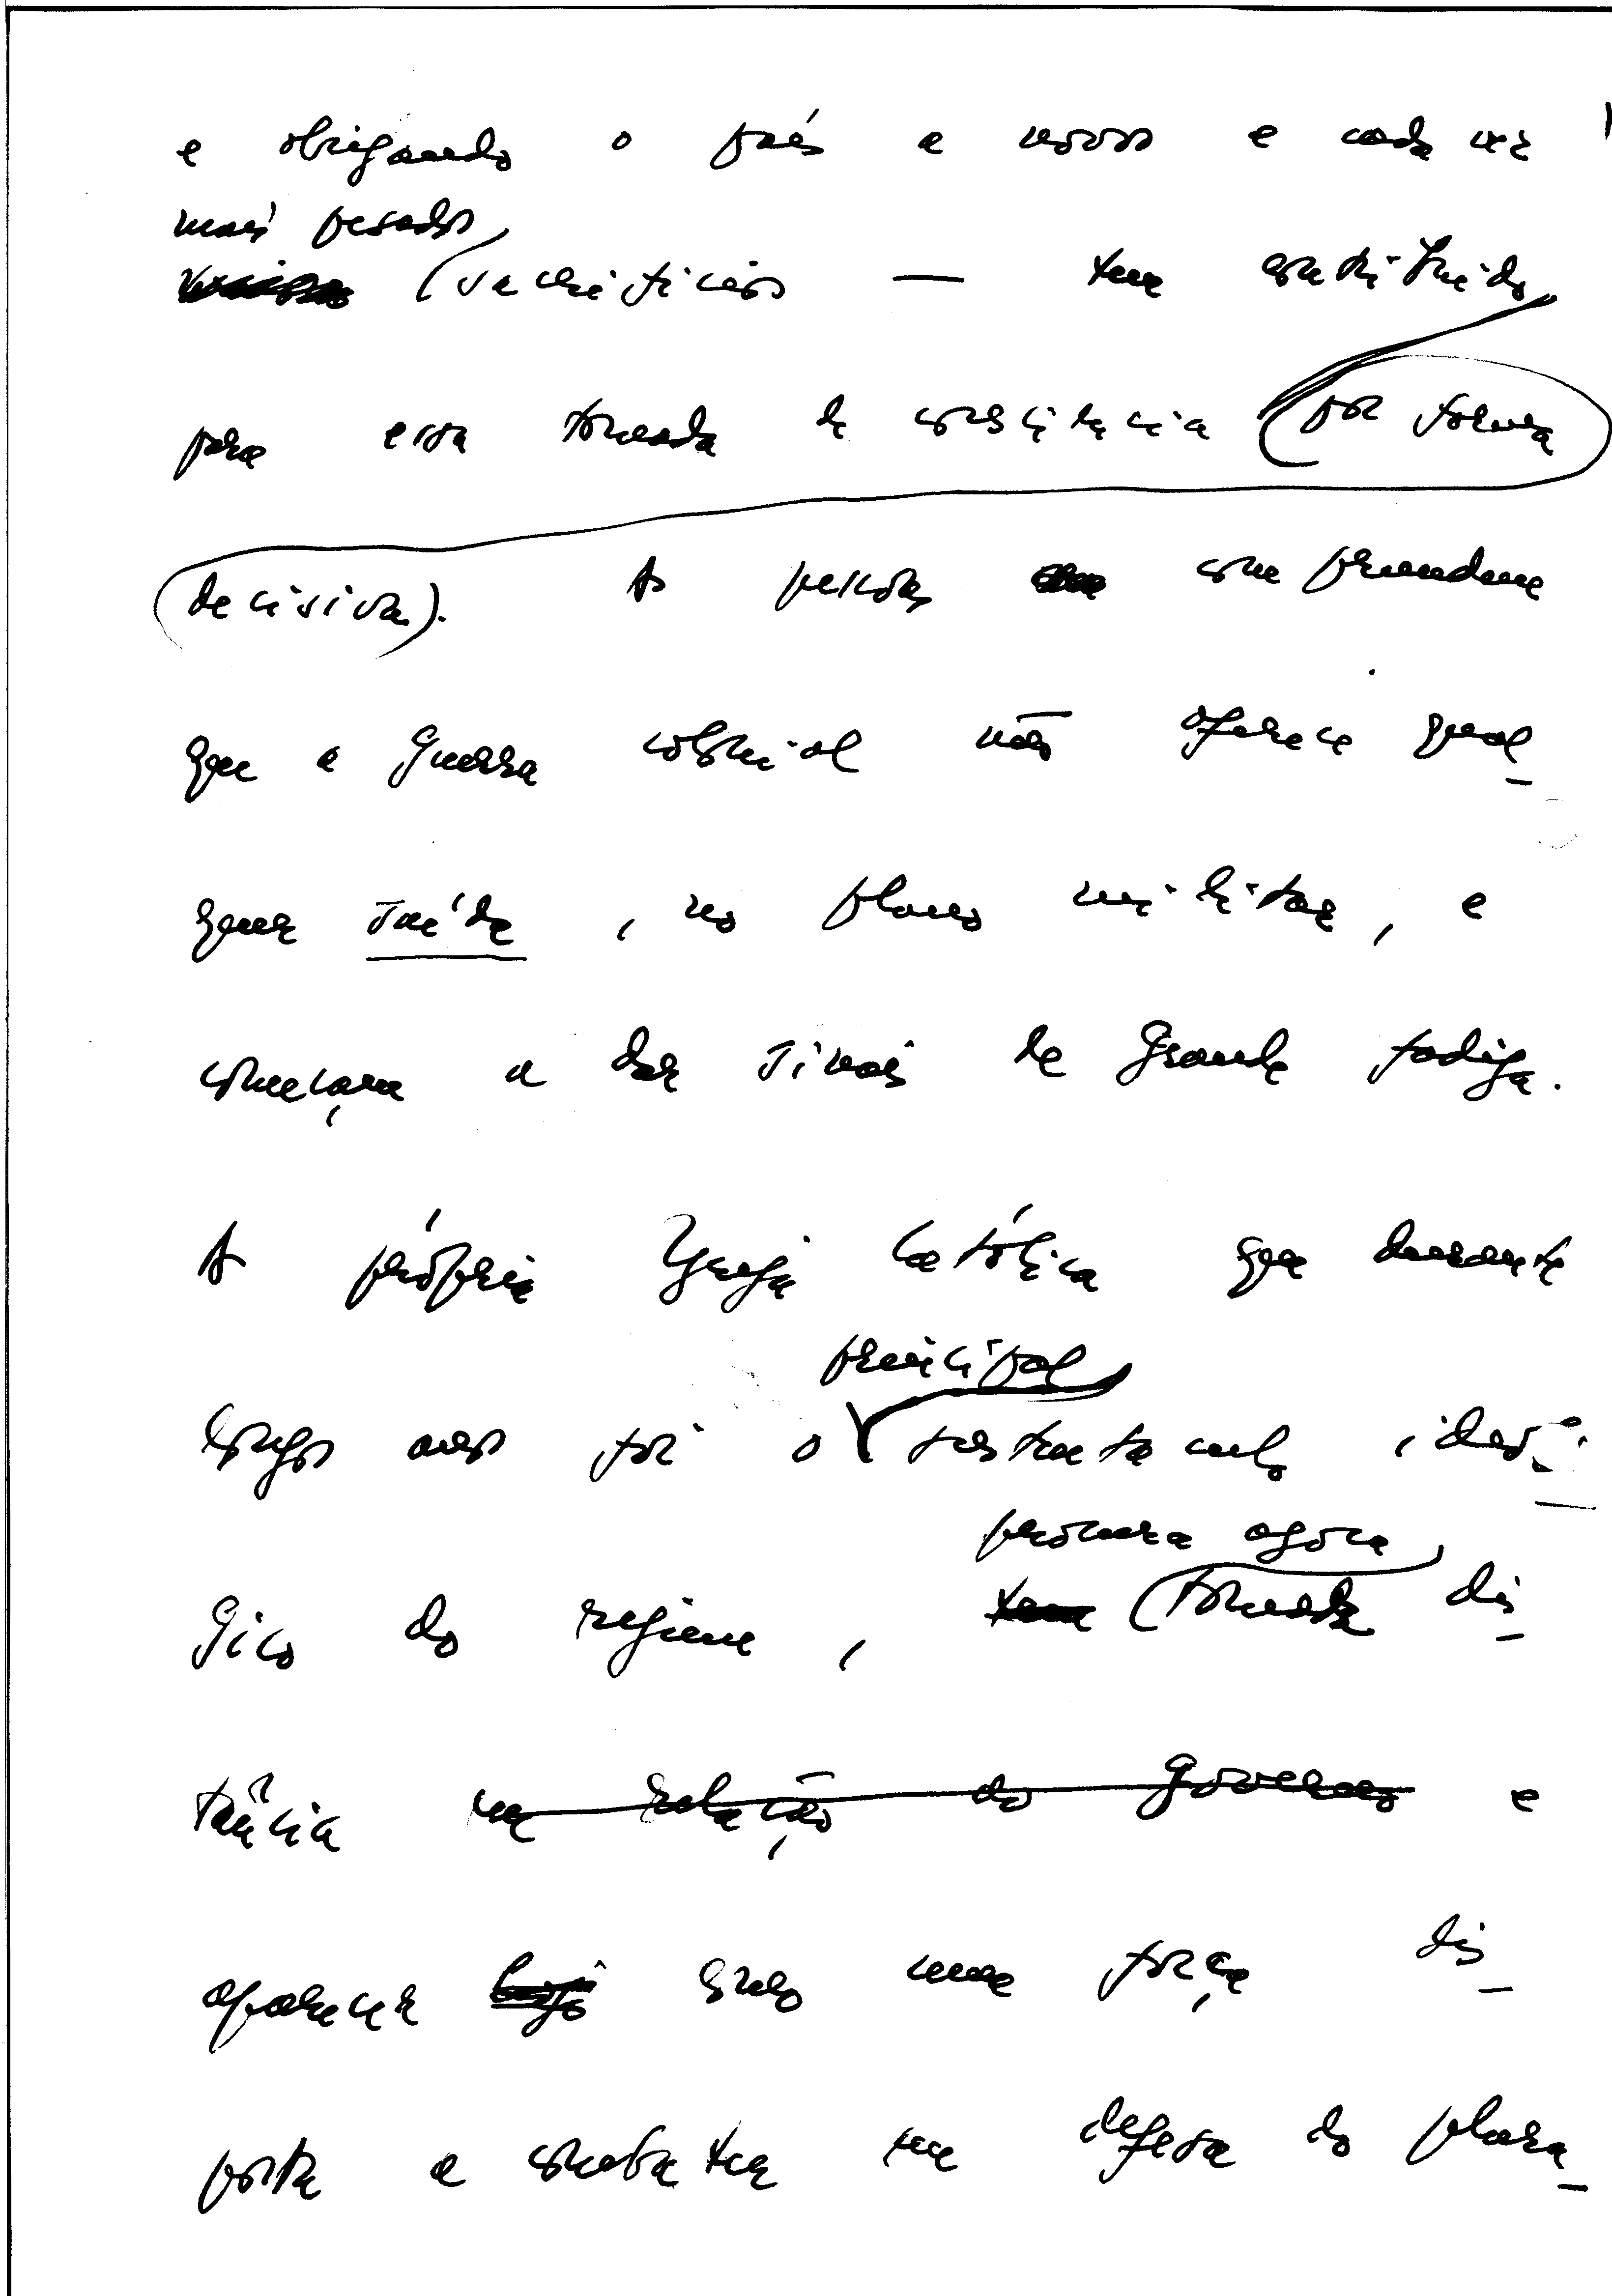 e obrigando o país a novos e cada vez
mais pesados
sacrifícios — tem contribuído
para essa tomada de consciência (por forma
decisiva). As pessoas compreendem
que a guerra colonial não oferece qual-
quer saída, no plano militar, e
começam a dar sinais de grande fadiga.
A própria Igreja Católica que durante
longos anos foi o
principal
sustentáculo ideoló-
gico do regime,
procura agora
tem (tomar dis-
tância na relação do Governo e
aparecer como uma força dis-
posta a combater em defesa do plura-